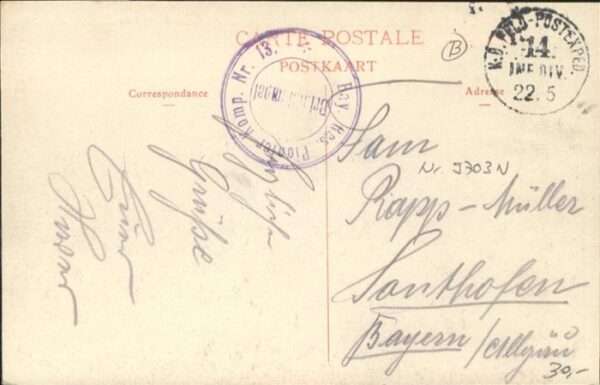 CARTE POSTALE
POSTKAART
Correspondance
Adresse
Bay. Res. Pionier Komp. Nr. 13.
K.D. FELD-POSTEXPED.
14.
INF. DIV.
22.5
B
Nr. J703N
Fam
Rapp-Müller
Sonthofen
Bayern / Allgäu
30,-
Herzliche
Grüße